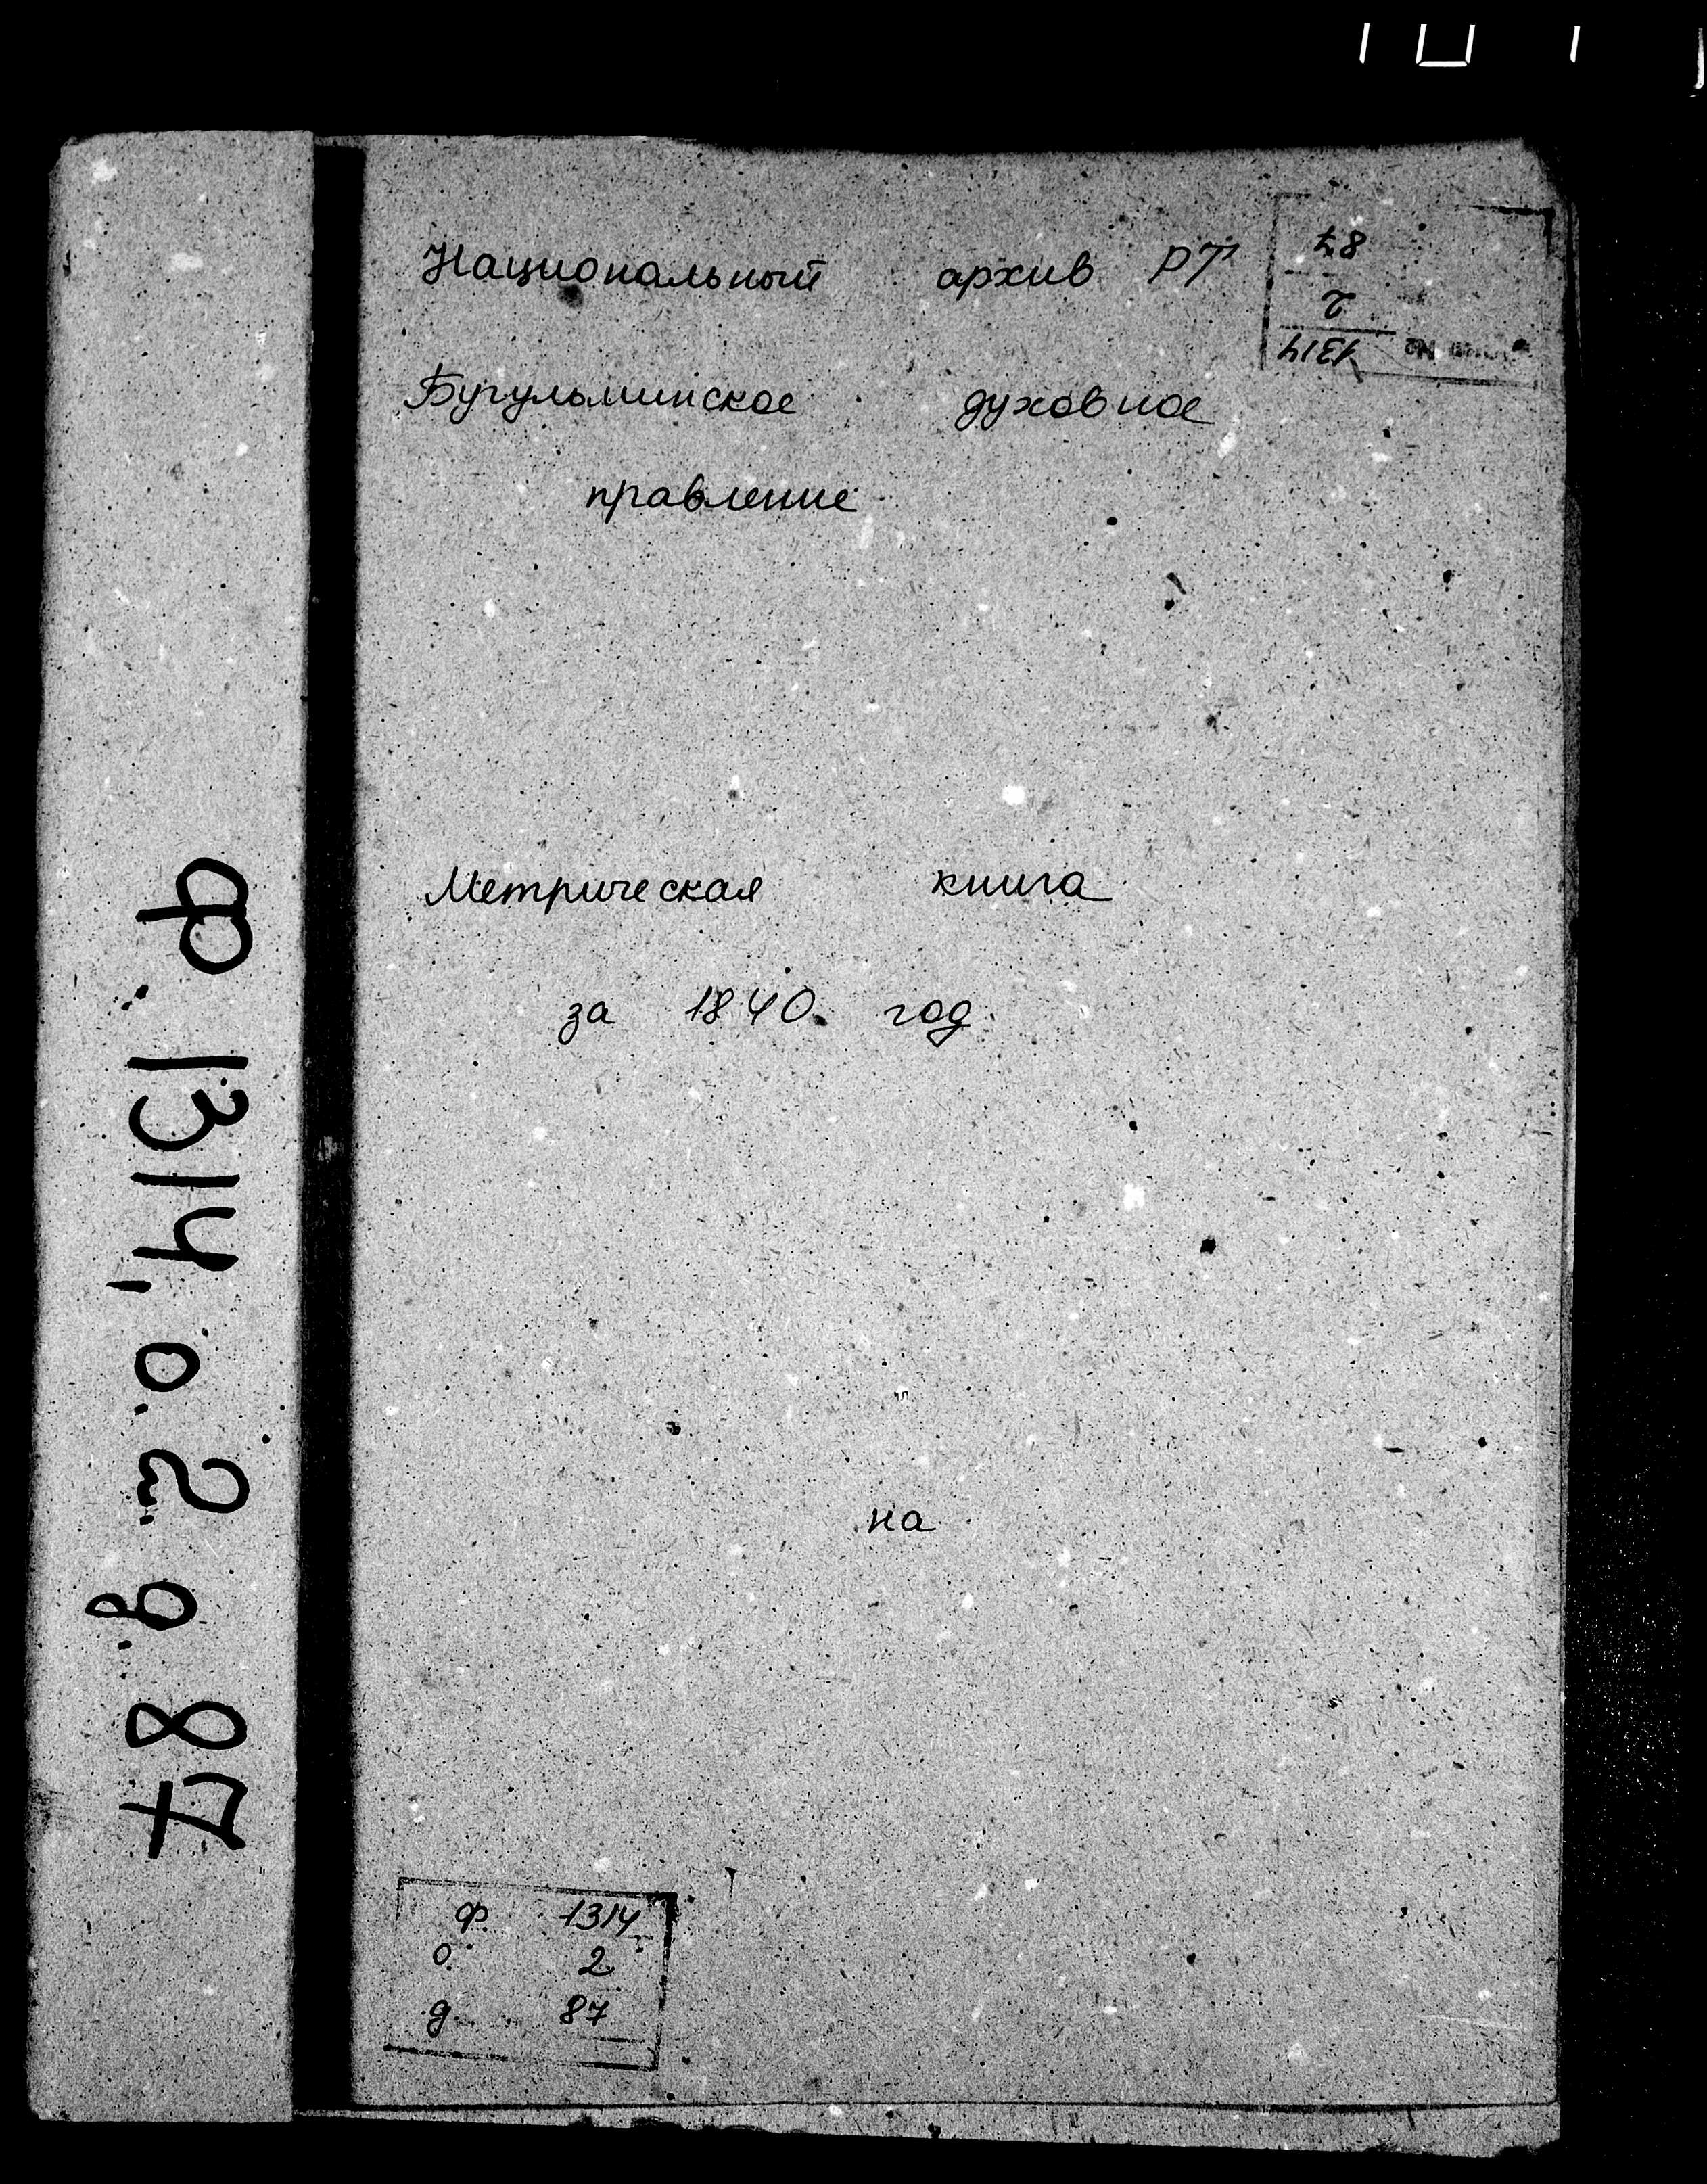 Национальный архив РТ
87
2
1314
Бугульминское духовное
правление
Метрическая книга
за 1840 год
на
ф. 1314, о. 2 д. 87
ф. 1314
о. 2
д. 87